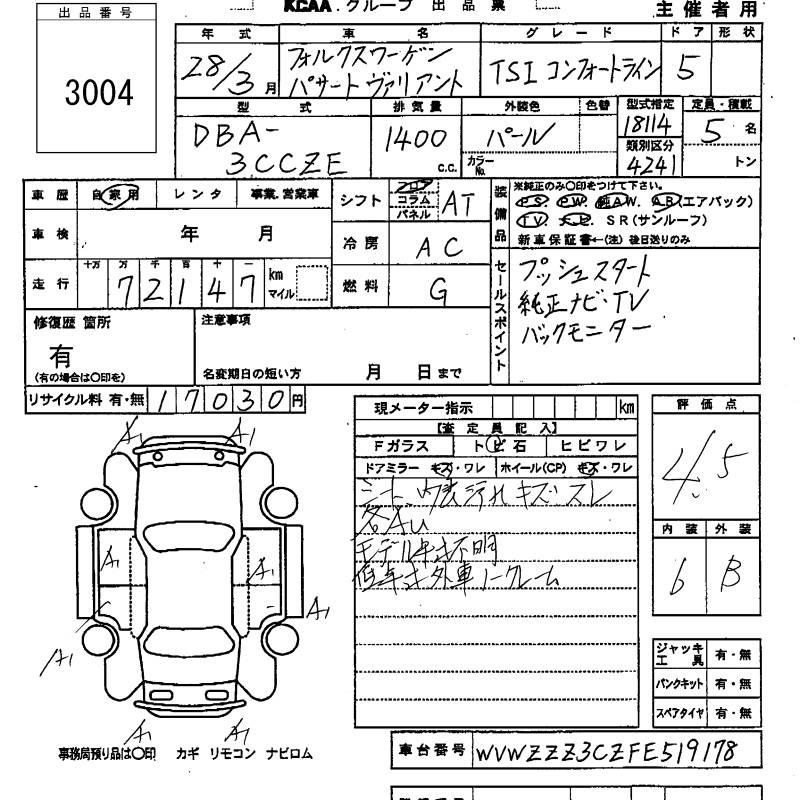 出品番号
3004
KCAA.グループ 出品票
主催者用
年式 車名 グレード ドア 形状
28/3月 フォルクスワーゲン パサート ヴァリアント TSI コンフォートライン 5
型式 排気量 外装色 色替 型式指定 定員・積載
DBA-3CCZE 1400 c.c. パール カラーNo. 18114 5名
類別区分 4241 トン
車歴 自家用 レンタ 事業.営業車
車検 年 月
走行 十万 万 千 百 十 一
72147 km マイル
シフト フロア コラム パネル AT
冷房 AC
燃料 G
装備品 ※純正のみ〇印をつけて下さい。
P.S. P.W. 純A.W. A.B.(エアバック)
TV S R(サンルーフ)
新車保証書←(注) 後日送りのみ
セールスポイント
プッシュスタート
純正ナビ・TV
バックモニター
修復歴 箇所
有
(有の場合は〇印を)
注意事項
名変期日の短い方 月 日まで
リサイクル料 有・無 17030円
現メーター指示 km
【査定員記入】
Fガラス トビ石 ヒビワレ
ドアミラー キズ・ワレ ホイール(CP) キズ・ワレ
シート、内装汚れ キズ・スレ
各AU
モデル年式不明
低年式外車ノークレーム
評価点
4.5
内装 外装
6 B
A1 A1
A1 A1
A1
A1
A1 A1
ジャッキ工具 有・無
パンクキット 有・無
スペアタイヤ 有・無
事務局預り品は〇印 カギ リモコン ナビロム
車台番号 WVWZZZ3CZFE519178